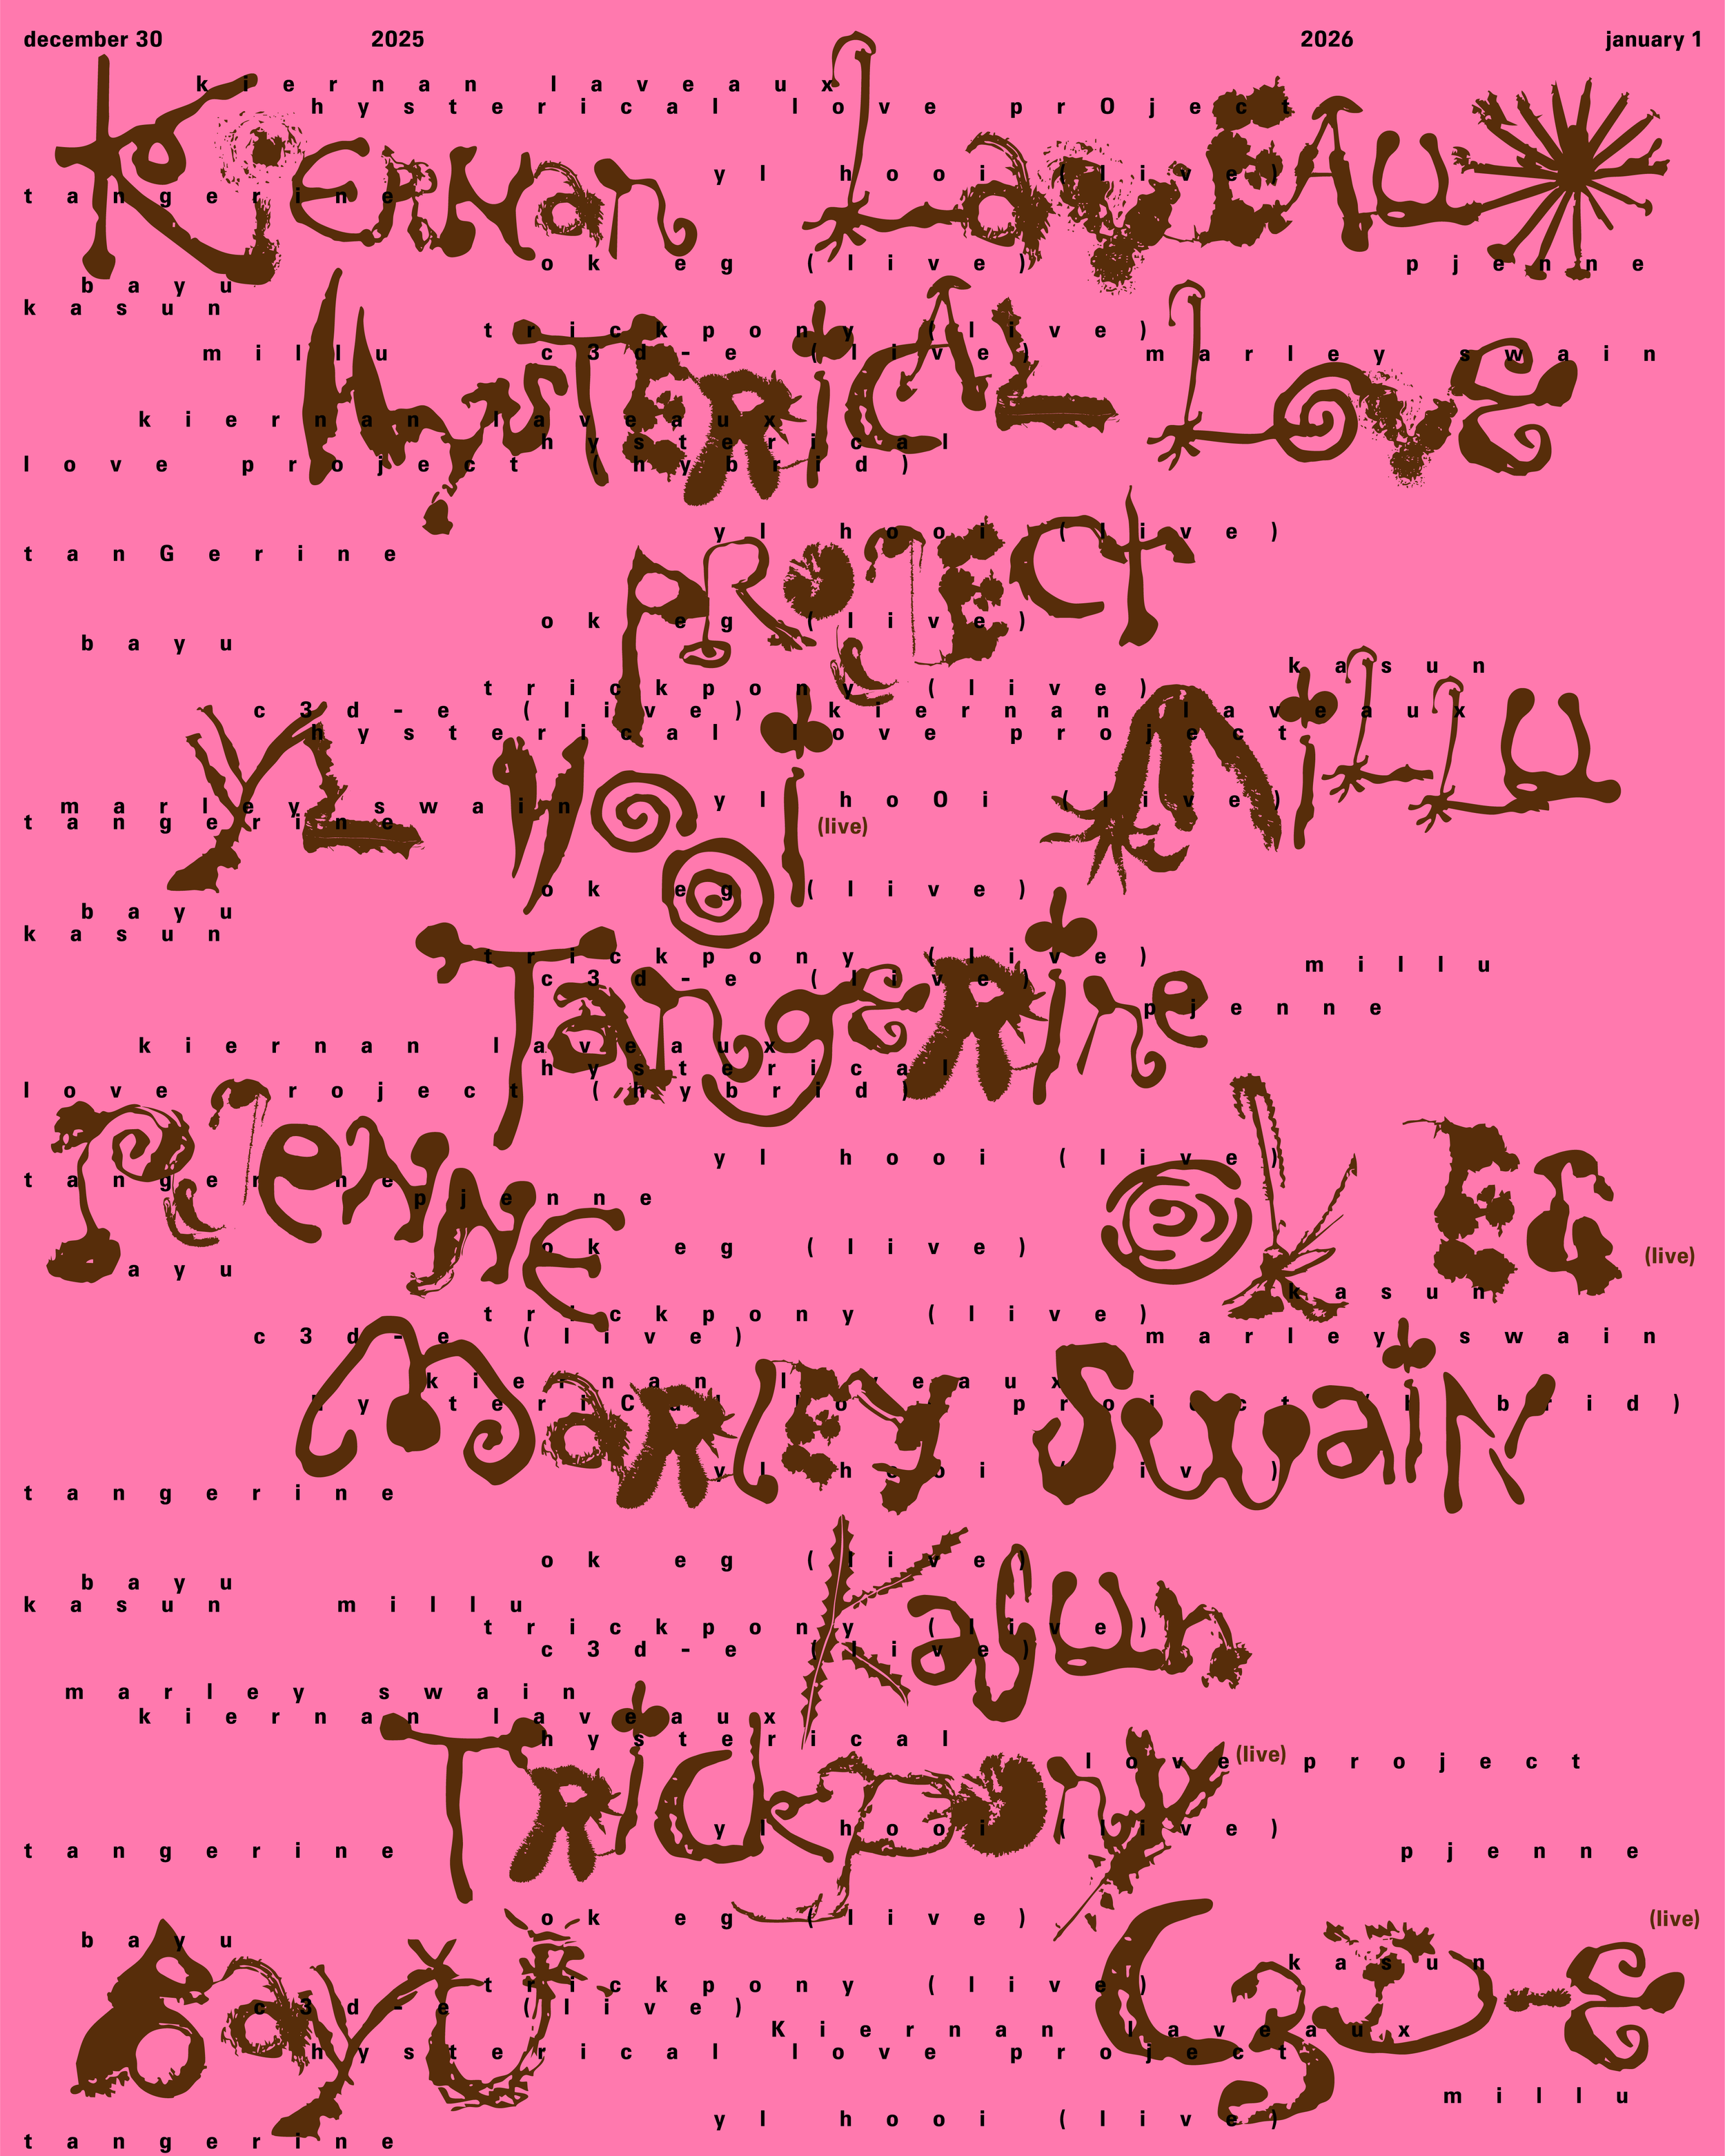 december 30 2025 2026 january 1
kiernan laveaux
hysterical love prOject
KiERNan LaVEAUX
yl hooi (live)
tangerine
ok eg (live) pjenne
bayu
kasun
trickpony (live)
millu c3d-e (live) marley swain
HySTERiCAL LOVE
kiernan laveaux
hysterical
love project (hybrid)
yl hooi (live)
tanGerine
PROJECt
ok eg (live)
bayu
kasun
trickpony (live)
c3d-e (live) kiernan laveaux
hysterical love project
YL HOOi (live)
MiLLU
marley swain yl hoOi (live)
tangerine
ok eg (live)
bayu
kasun
trickpony (live) millu
c3d-e (live)
TangeRine
pjenne
kiernan laveaux
hysterical
love project (hybrid)
PJeNNE
yl hooi (live)
tangerine
pjenne
OK EG (live)
ok eg (live)
bayu
kasun
trickpony (live)
c3d-e (live) marley swain
MaRLEY SwaiN
kiernan laveaux
hysteriCal love project (hybrid)
yl hooi (live)
tangerine
ok eg (live)
bayu
kasun millu
KaSun
trickpony (live)
c3d-e (live)
marley swain
kiernan laveaux
hysterical
love project
TRiCkpony (live)
yl hooi (live)
tangerine pjenne
ok eg (live)
bayu
BayU
C3D-E (live)
kasun
trickpony (live)
c3d-e (live)
Kiernan laveaux
hysterical love project
millu
yl hooi (live)
tangerine